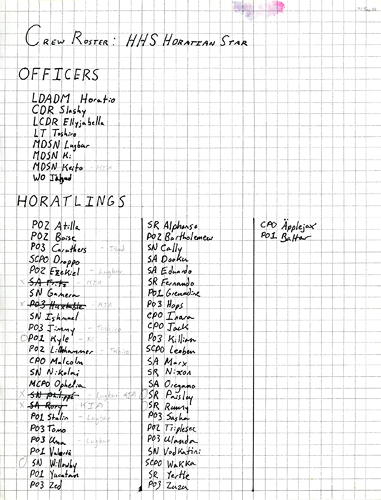 CREW ROSTER: HHS HORATIAN STAR
OFFICERS
LDADM Horatio
CDR Slashy
LCDR Ellyjabella
LT Toshiro
MDSN Lugbar
MDSN Ki
MDSN Keito - MIA
WO
HORATLINGS
PO2 Atilla
PO2 Boise
PO3 Caruthers
SCPO Droppo
PO2 Ezekiel - Lugbar
x SA Fritz - MIA
SN Gamera
x PO3 Huxtable - MIA
SN Ishmael
PO3 Jimmy - Toshiro
O PO1 Kyle - Ki
PO2 Lillehammer - Toshiro
CPO Malcolm
SN Nikolai
MCPO Ophelia
x SN Philippe - Lugbar MIA
x SA Rory KIA
PO1 Stalin - Lugbar
PO3 Tomo
PO3 Una - Lugbar
PO1 Valerie
O SN Willoughby
PO1 Yucatan
PO3 Zed
SR Alphonso
PO2 Bartholemew
SN Cally
SA Dooku
SA Eduardo
SR Fernando
PO1 Grenadine
PO3 Hops
CPO Inara
CPO Jack
PO3 Killian
SCPO Leoben
SA Marx
SR Nixon
SA Oregano
SR Paisley
SR Rummy
PO3 Sasha
PO2 Triplesec
PO3 Uganda
SN Vodkatini
SCPO Wakka
SR Yertle
PO3 Zuzu
CPO Äpplejax
PO1 Baltar